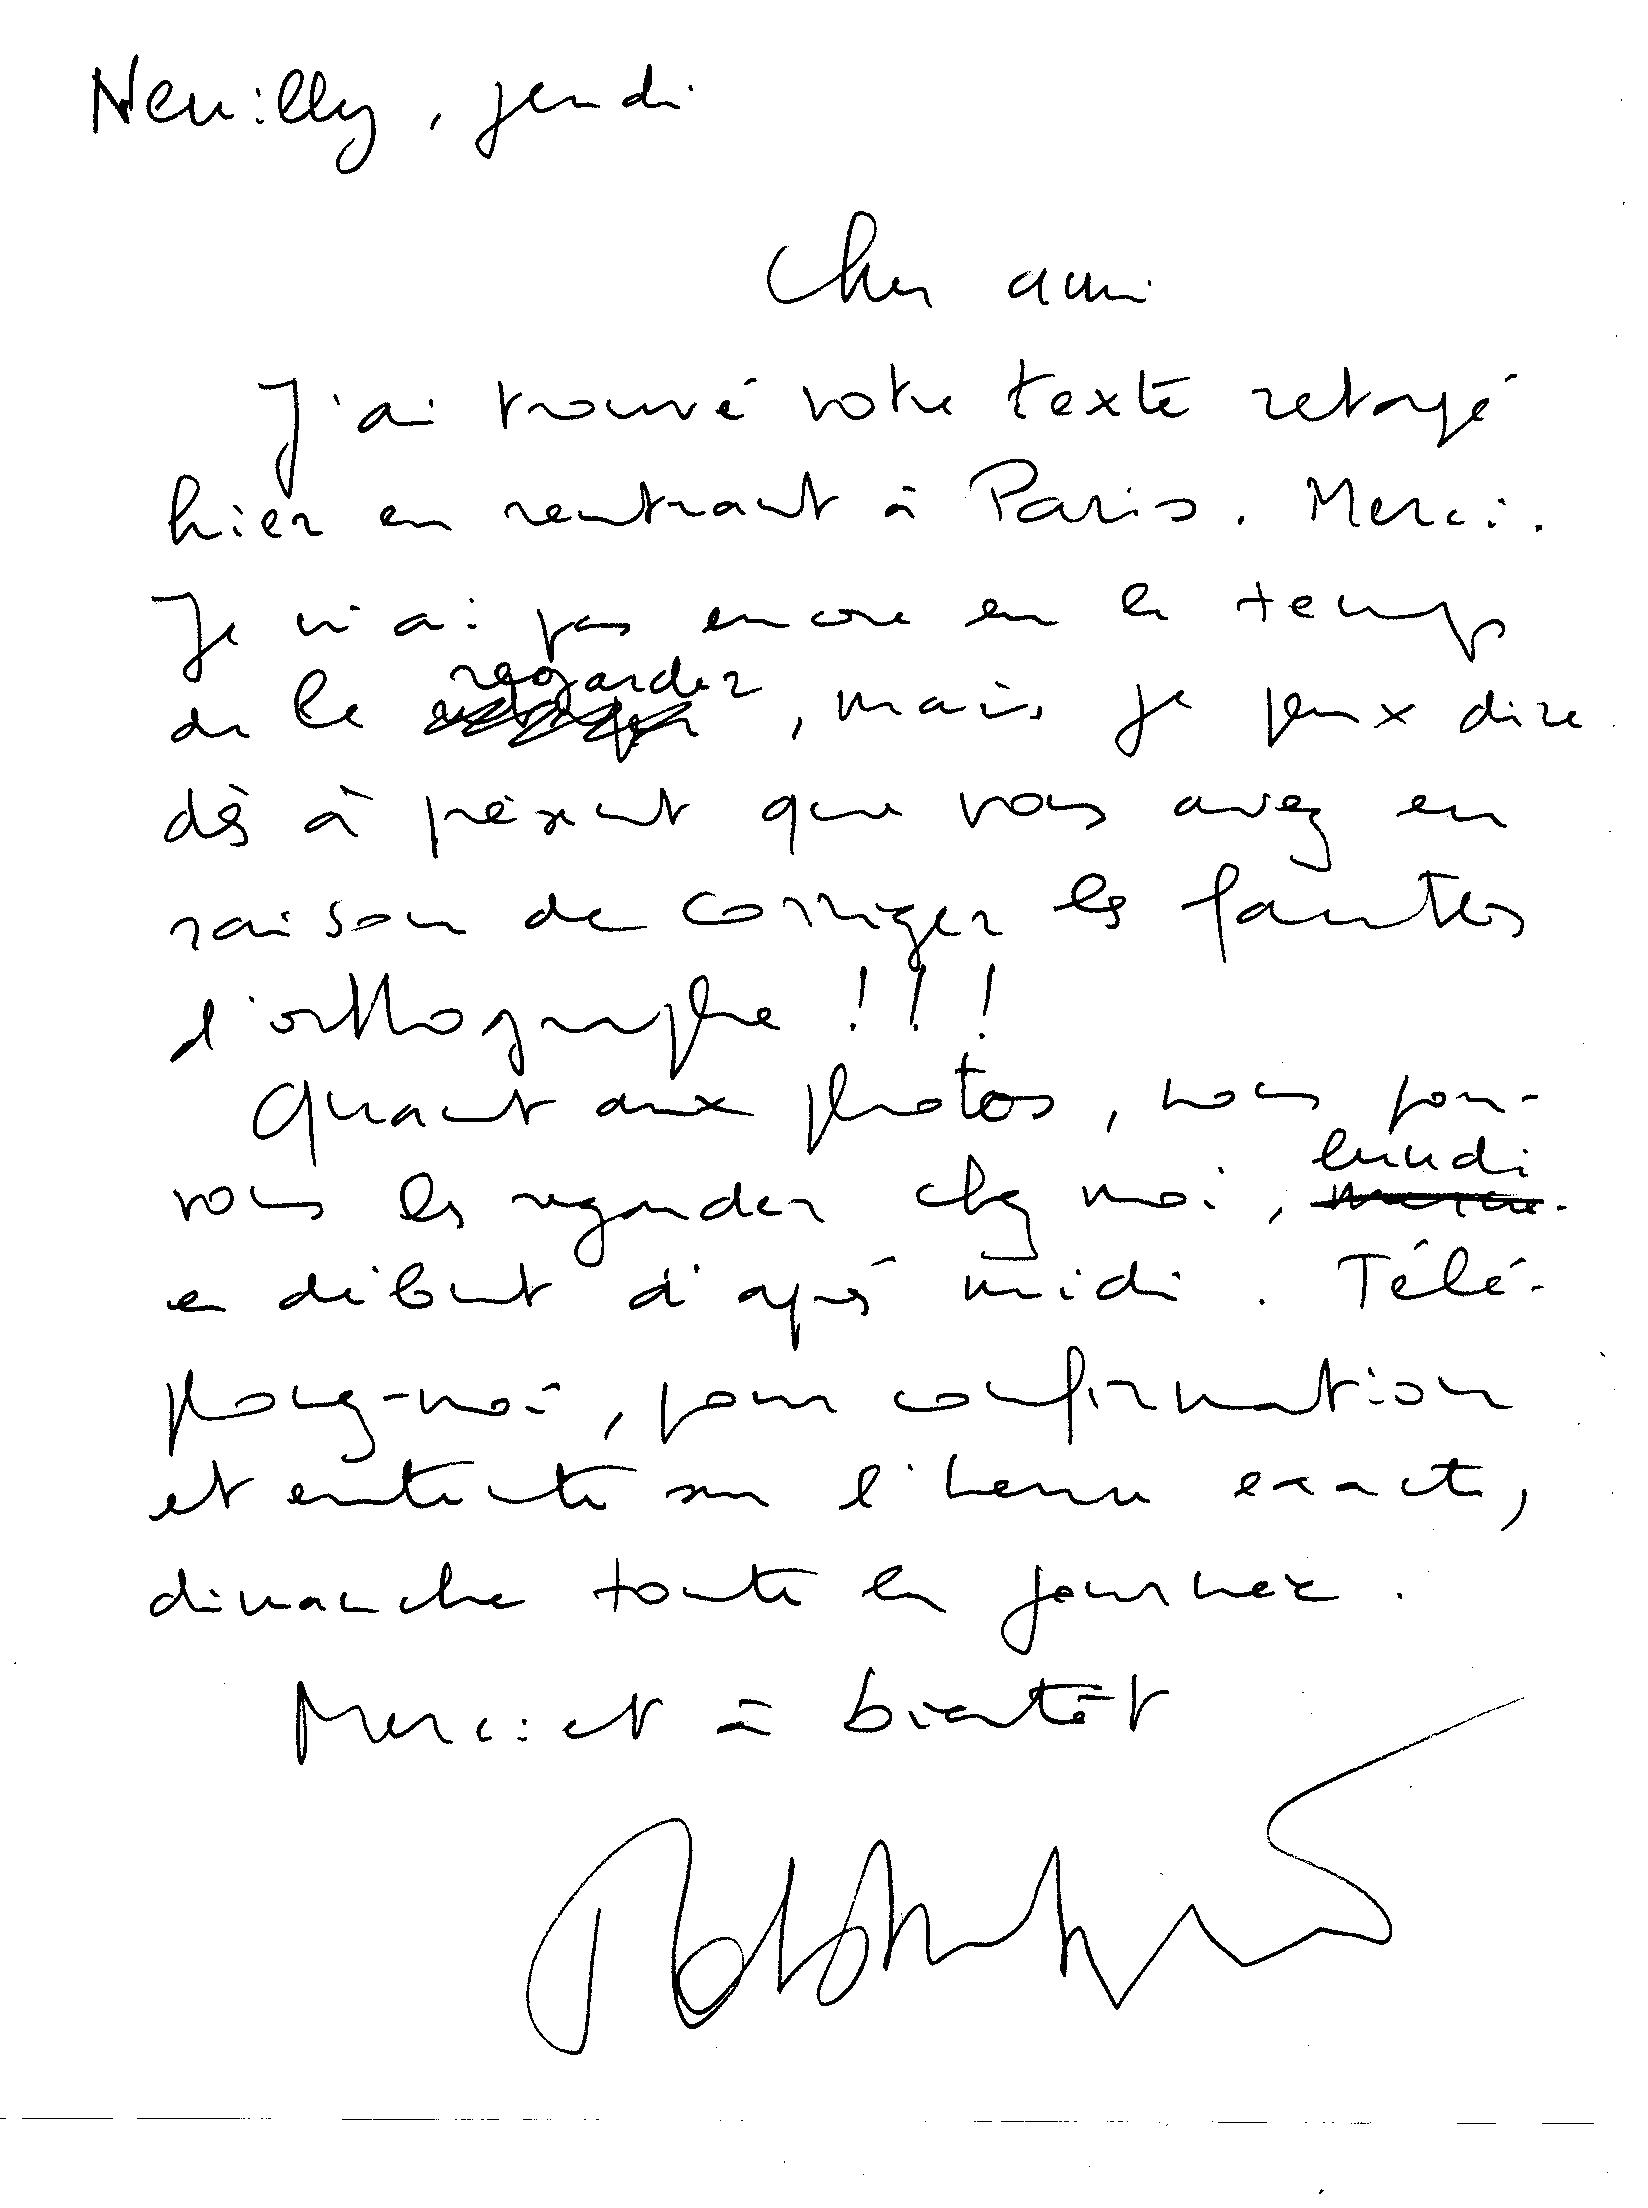 Neuilly, jeudi
Cher ami
J'ai trouvé votre texte retapé
hier en rentrant à Paris. Merci.
Je n'ai pas encore eu le temps
de le regarder, mais je peux dire
dès à présent que vous avez eu
raison de corriger les fautes
d'orthographe !!!
Quant aux photos, nous pou-
vons les regarder chez moi, lundi
en début d'après midi. Télé-
phonez-moi, pour confirmation
et entente sur l'heure exacte,
dimanche toute la journée.
Merci et à bientôt